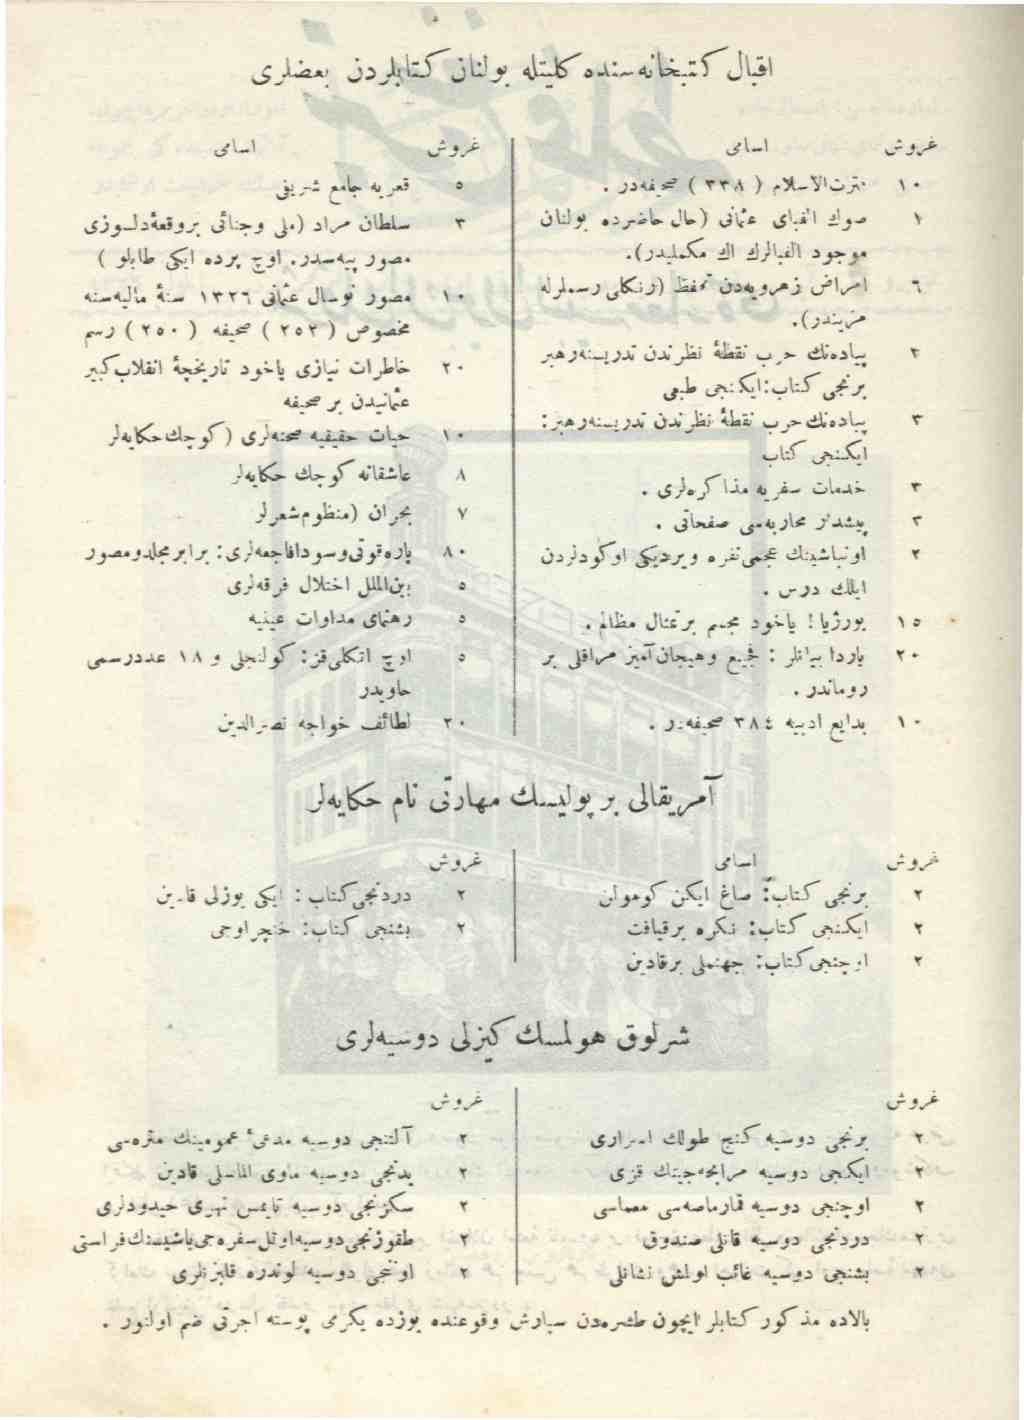 اقبال كتبخانه‌سنده كليتله بولنان كتابلردن بعضلری
غروش اسامی
١٠ نترت‌الاسلام ( ٣٣٨ ) صحیفه‌در .
١ صوك الفبای عثمانی (حال حاضرده بولنان
موجود الفبالرك اك مكملیدر).
٦ امراض زهرویه‌دن تحفظ (رنكلی رسملرله
مزیندر).
٢ پیاده‌نك حرب نقطۀ نظرندن تدریسنه‌رهبر
برنجی كتاب: ایكنجی طبعی
٣ پیاده‌نك حرب نقطۀ نظرندن تدریسنه‌رهبر:
ایكنجی كتاب
٣ خدمات سفریه مذاكره‌لری .
٣ پیشدار محاربه‌سی صفحاتی .
٢ اونباشینك عجمی‌نفره ویردیكی اوكودلردن
ایلك درس .
١٥ بورژیا ! یاخود مجسم برتمثال مظالم .
٢٠ یاردا ییانلر : فجیع وهیجان‌آمیز مراقلی بر
روماندر .
١٠ بدایع ادبیه ٣٨٤ صحیفه‌در .
غروش اسامی
٥ قعریه جامع شریفی
٣ سلطان مراد (ملی وجنائی بروقعۀدلسوزی
مصور پیه‌سدر. اوچ پرده ایكی طابلو )
١٠ مصور نوسال عثمانی ١٣٢٦ سنۀ مالیه‌سنه
مخصوص ( ٢٥٢ ) صحیفه ( ٢٥٠ ) رسم
٢٠ خاطرات نیازی یاخود تاریخچۀ انقلاب‌كبیر
عثمانیدن بر صحیفه
١٠ حیات حقیقیه صحنه‌لری (كوچك‌حكایه‌لر
٨ عاشقانه كوچك حكایه‌لر
٧ بحران (منظوم‌شعرلر
٨٠ پاره‌قوتی‌وسودافاجعه‌لری: برابرمجلدومصور
٥ بین‌الملل اختلال فرقه‌لری
٥ رهنمای مداوات عینیه
٥ اوچ انكلی‌قز: كولنجلی و ١٨ عددرسمی
حاویدر
٢٠ لطائف خواجه نصرالدین
آمریقالی بر پولیسك مهارتی نام حكایه‌لر
غروش اسامی
٢ برنجی كتاب: صاغ ایكن كومولن
٢ ایكنجی كتاب: نكره برقیافت
٢ اوچنجی‌كتاب: جهنملی برقادین
غروش
٢ دردنجی‌كتاب : ایكی یوزلی قادین
٢ بشنجی كتاب: خنچراوجی
شرلوق هولمسك كیزلی دوسیه‌لری
غروش
٢ برنجی دوسیه كنج طولك اسراری
٢ ایكنجی دوسیه مرابحه‌جینك قزی
٢ اوچنجی دوسیه قمارماصه‌سی معماسی
٢ دردنجی دوسیه قانلی صندوق
٢ بشنجی دوسیه غائب اولمش نشانلی
غروش
٢ آلتنجی دوسیه مدعیٔ عمومینك متره‌سی
٢ یدنجی دوسیه ماوی الماسلی قادین
٢ سكزنجی دوسیه تایمس نهری حیدودلری
٢ طقوزنجی‌دوسیه‌اوتل‌سفره‌جی‌باشیسنك‌فراستی
٢ اوننجی دوسیه لوندره قلبزنلری
بالاده مذكور كتابلر ایچون طشره‌دن سپارش وقوعنده یوزده یكرمی پوسته اجرتی ضم اولنور .